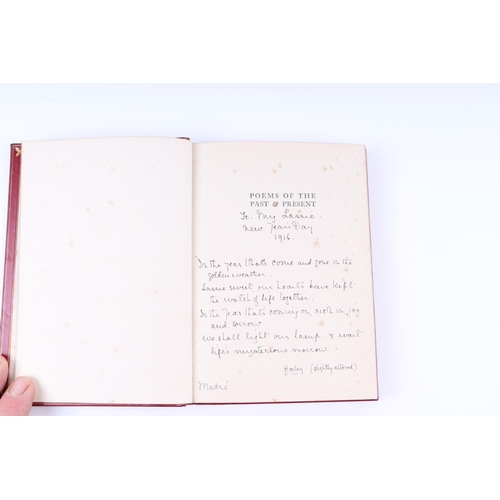 POEMS OF THE
PAST & PRESENT
To My Lassie.
New Year's Day
1916.
"In the year that's come and gone, in the
golden weather.
Lassie sweet our hearts have kept
the watch of life together.
In the year that's coming on rich in joy
and sorrow
We shall light our lamp & wait
life's mysterious morrow.
Henley (slightly altered)
Madré